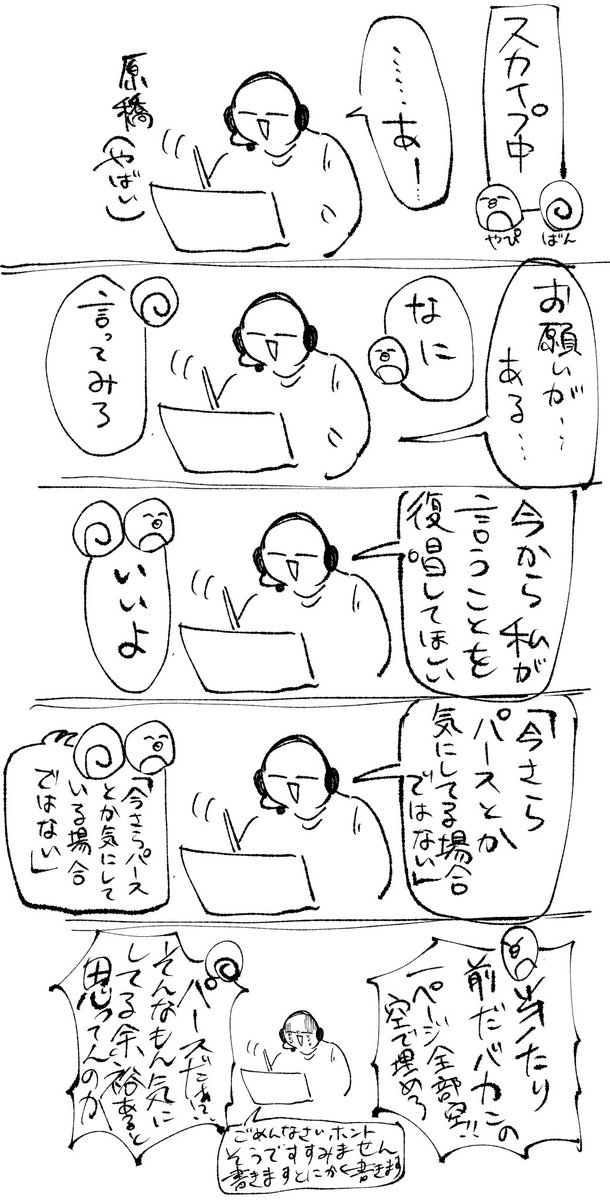 スカイプ中
やぴ
ばん
……あー…
原橋
(やばい)
お願いが…
ある…
なに
言ってみろ
今から私が
言うことを
復唱してほしい
いいよ
「今さら
パースとか
気にしてる場合
ではない」
「今さらパース
とか気にして
いる場合
ではない」
当ったり
前だバカこの
一ページ全部空!!
空で埋めろ
パースだぁ!?
そんなもん気に
してる余裕あると
思ってんのか
ごめんなさいホント
そうですすみません
書きますとにかく書きます